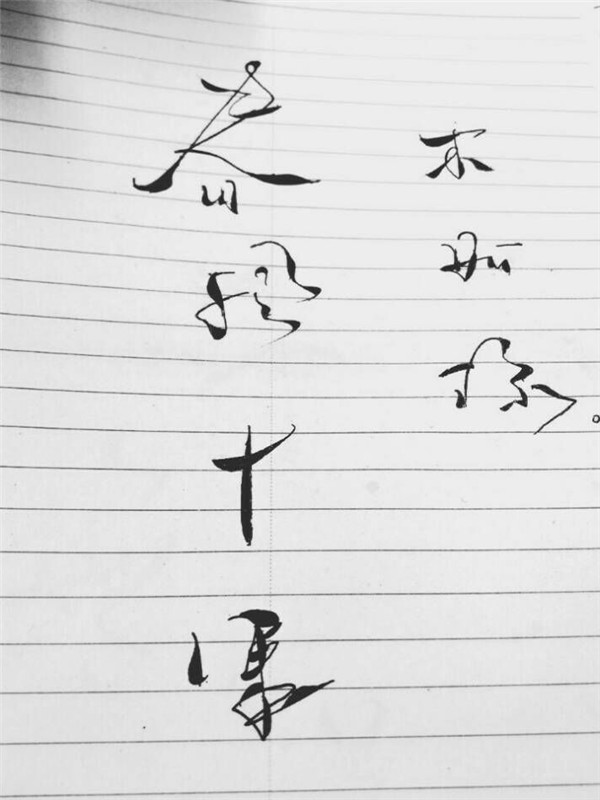 春风十里
不如你。